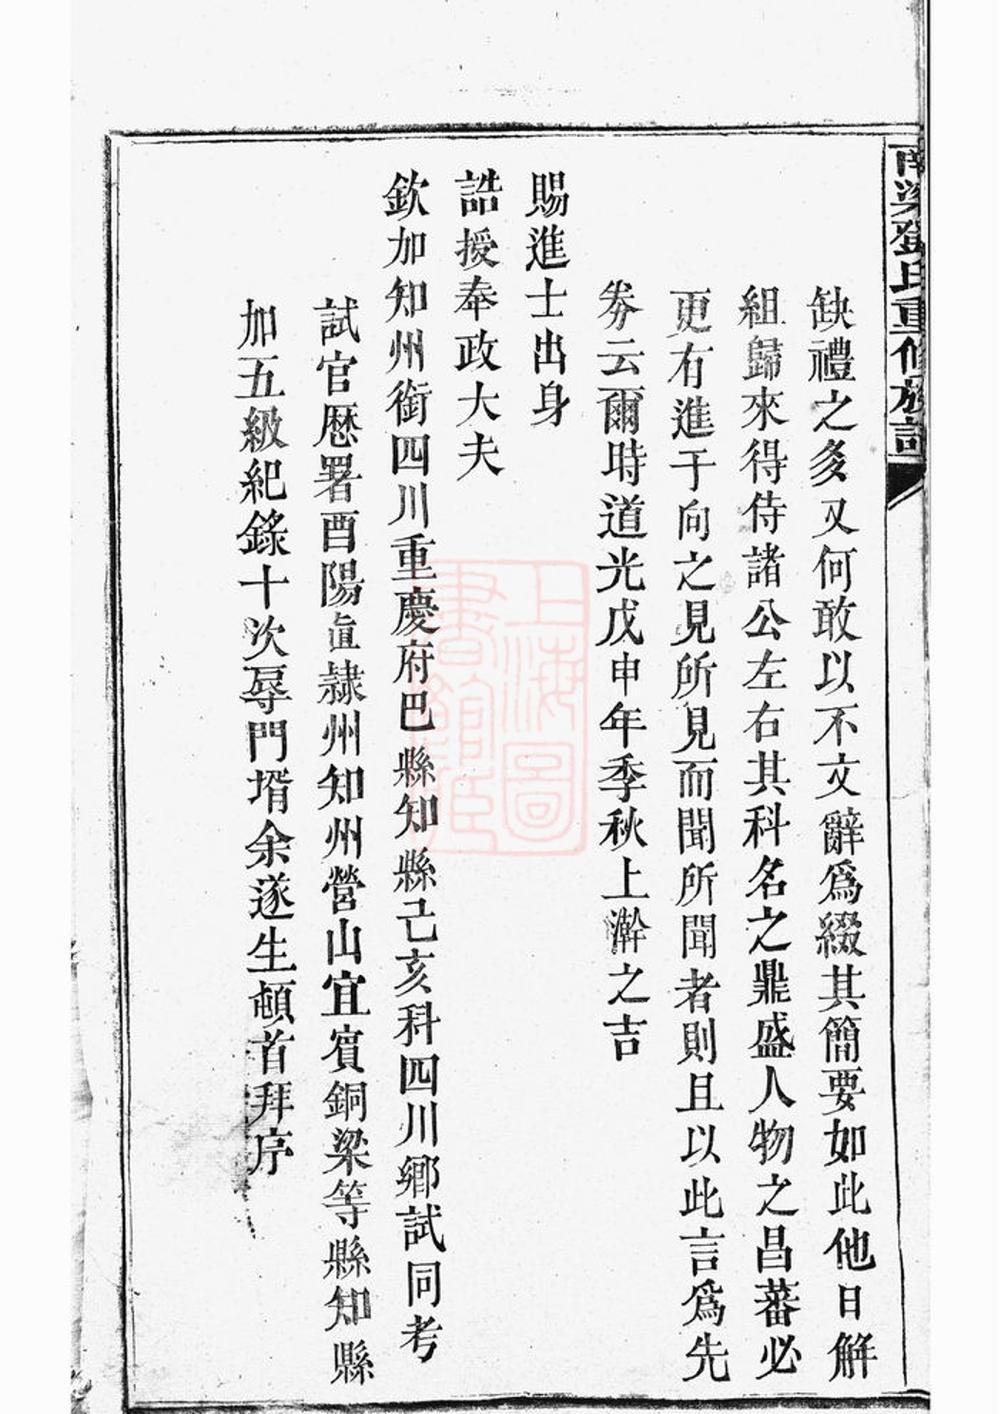 南梁鄧氏重修族譜
缺禮之多又何敢以不文辭爲綴其簡要如此他日解
組歸來得侍諸公左右其科名之鼎盛人物之昌蕃必
更有進于向之見所見而聞所聞者則且以此言爲先
劵云爾時道光戊申年季秋上澣之吉
賜進士出身
誥授奉政大夫
欽加知州銜四川重慶府巴縣知縣己亥科四川鄉試同考
試官歷署酉陽直隸州知州營山宜賓銅梁等縣知縣
加五級紀錄十次辱門壻余遂生頓首拜序
上海圖書館藏